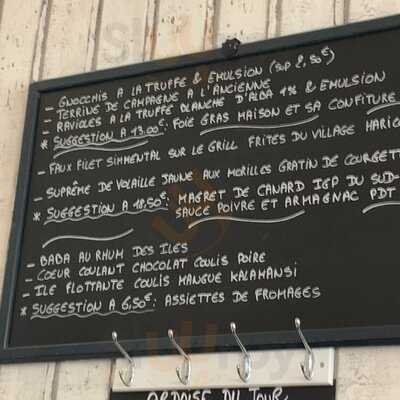 - GNOCCHIS A LA TRUFFE & EMULSION (SUP 2,50€)
- TERRINE DE CAMPAGNE A L'ANCIENNE
- RAVIOLES A LA TRUFFE BLANCHE D'ALBA 1% & EMULSION
* SUGGESTION A 13.00€: FOIE GRAS MAISON ET SA CONFITURE
- FAUX FILET SIMMENTAL SUR LE GRILL FRITES DU VILLAGE HARIC
- SUPRÊME DE VOLAILLE JAUNE AUX MORILLES GRATIN DE COURGETT
* SUGGESTION A 18,50€: MAGRET DE CANARD IGP DU SUD-
SAUCE POIVRE ET ARMAGNAC PDT
- BABA AU RHUM DES ILES
- COEUR COULANT CHOCOLAT COULIS POIRE
- ILE FLOTTANTE COULIS MANGUE KALAMANSI
* SUGGESTION A 6,50€: ASSIETTES DE FROMAGES
ARDOISE DU JOUR